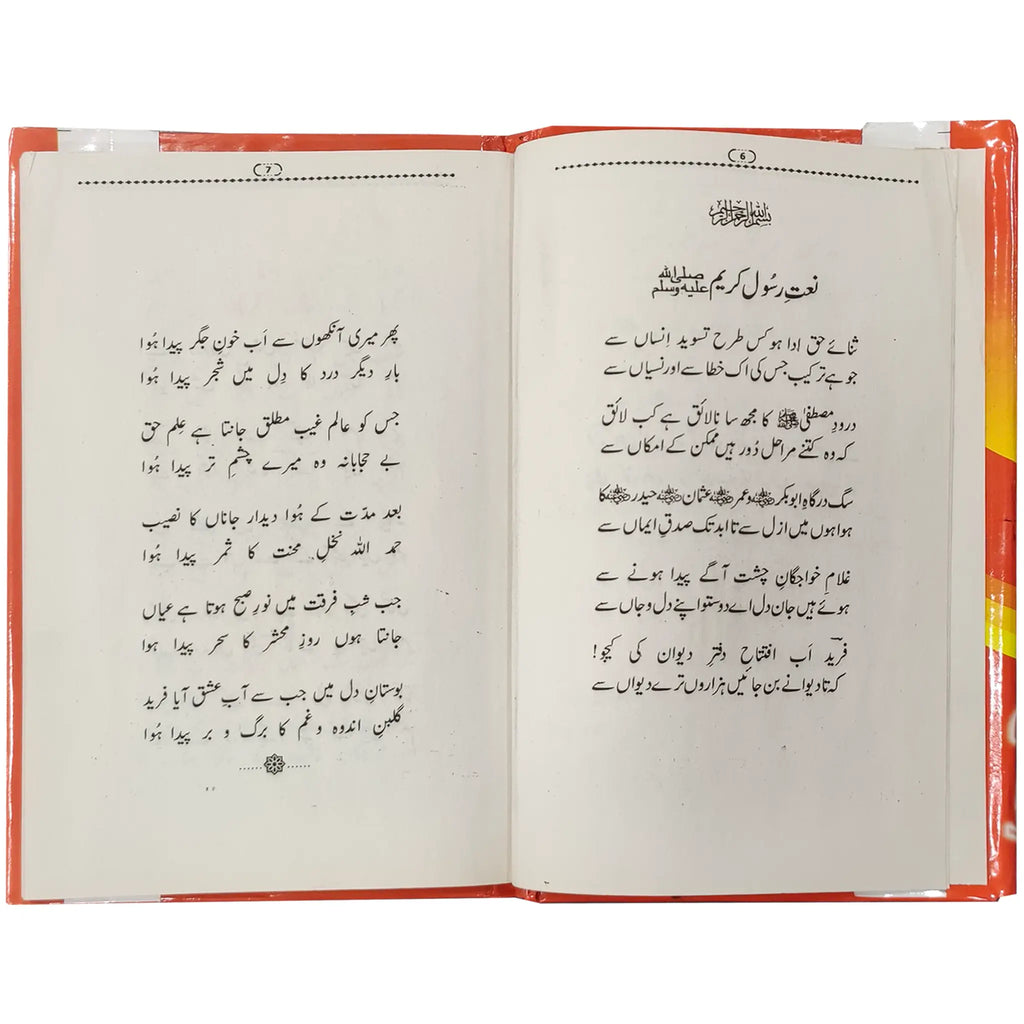 6
بسم اللہ الرحمن الرحیم
نعتِ رسُول کریم صلی اللہ علیہ وسلم
ثنائے حق ادا ہو کس طرح تسوید اِنساں سے
جو ہے ترکیب جس کی اک خطا سے اور نسیاں سے
درودِ مصطفیٰ ﷺ کا مجھ سا نالائق ہے کب لائق
کہ وہ کتنے مراحل دُور ہیں ممکن کے امکاں سے
سگ درگاہِ ابوبکرؓ و عمرؓ عثمانؓ حیدرؓ کا
ہوا ہوں میں ازل سے تا ابد تک صدقِ ایماں سے
غلامِ خواجگانِ چشت آگے پیدا ہونے سے
ہوئے ہیں جان دل اے دوستو اپنے دل و جاں سے
فریدؔ اَب افتتاحِ دفترِ دیوان کی کیجو!
کہ تا دیوانے بن جائیں ہزاروں ترے دیواں سے
7
پھر میری آنکھوں سے اَب خونِ جگر پیدا ہُوا
بارِ دیگر درد کا دِل میں شجر پیدا ہُوا
جس کو عالم غیب مطلق جانتا ہے عِلم حق
بے حجابانہ وہ میرے چشمِ تر پیدا ہُوا
بعد مدّت کے ہُوا دیدار جاناں کا نصیب
حمد اللہ نخلِ محنت کا ثمر پیدا ہُوا
جب شبِ فرقت میں نورِ صبح ہوتا ہے عیاں
جانتا ہوں روزِ محشر کا سحر پیدا ہُوا
بوستانِ دل میں جب سے آبِ عشق آیا فرید
گلبنِ اندوہ و غم کا برگ و بر پیدا ہُوا